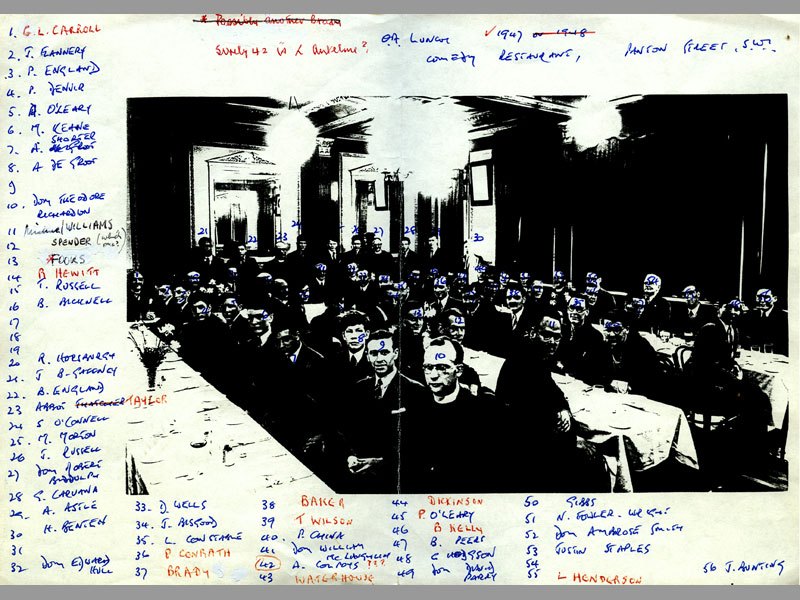 * Possibly another Brady
Surely 42 is L Anselme?
O.A. LUNCH ✓ 1947 or 1948
COMEDY RESTAURANT, PANTON STREET, S.W.1.
1. G. L. CARROLL
2. J. FLANNERY
3. P. ENGLAND
4. P. DENVIR
5. O'LEARY
6. M. KEANE
7. A. SHORTER
8. A DE GROOT
9
10. DOM THEODORE
RICHARDSON
11 /WILLIAMS
12 SPENDER (which one?)
13 FOOKS
14 B HEWITT
15 T. RUSSELL
16 B. BICKNELL
17
18
19
20 R. HORSBURGH
21. J B-GAFFNEY
22 B. ENGLAND
23 ABBOT TAYLOR
24 S O'CONNELL
25 M. MORTON
26 J. RUSSELL
27 DOM ROBERT
BIDDULPH
28 G. CARUANA
29. A. ASTLE
30 H. BENTEN
31
32 DOM EDWARD
HULL
33. D. WELLS
34. J. ALSGOOD
35. L. CONSTABLE
36 P CONRATH
37 BRADY
38 BAKER
39 T WILSON
40. P. CHINA
41 DOM WILLIAM
MCLAUGHLIN
42 A. ???
43 WATERHOUSE
44 DICKINSON
45 P O'LEARY
46 B KELLY
47 B. PEERS
48 C HODGSON
49 DOM DAVID
PARRY
50 GIBBS
51 N. FOWLER-WRIGHT
52 DOM AMBROSE SMITH
53 JUSTIN STAPLES
54
55 L HENDERSON
56 J. BUNTING